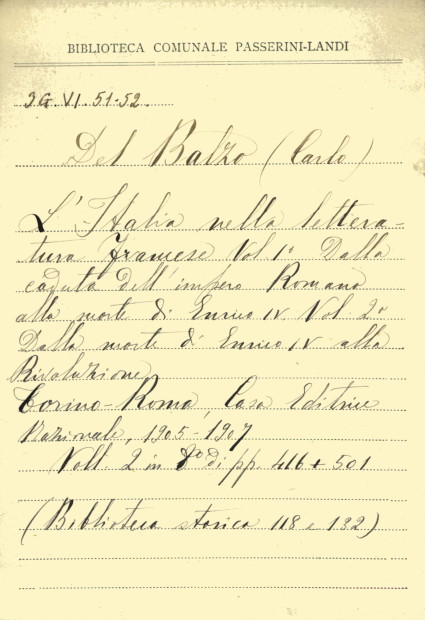 BIBLIOTECA COMUNALE PASSERINI-LANDI
3G.VI.51-52.
Del Balzo (Carlo)
L'Italia nella lettera-
tura francese Vol 1º Dalla
caduta dell'impero Romano
alla morte di Enrico IV. Vol 2º
Dalla morte di Enrico IV alla
Rivoluzione
Torino-Roma, Casa Editrice
Nazionale, 1905-1907
Voll. 2 in 8º di pp. 416 + 501
(Biblioteca storica 118 e 132)